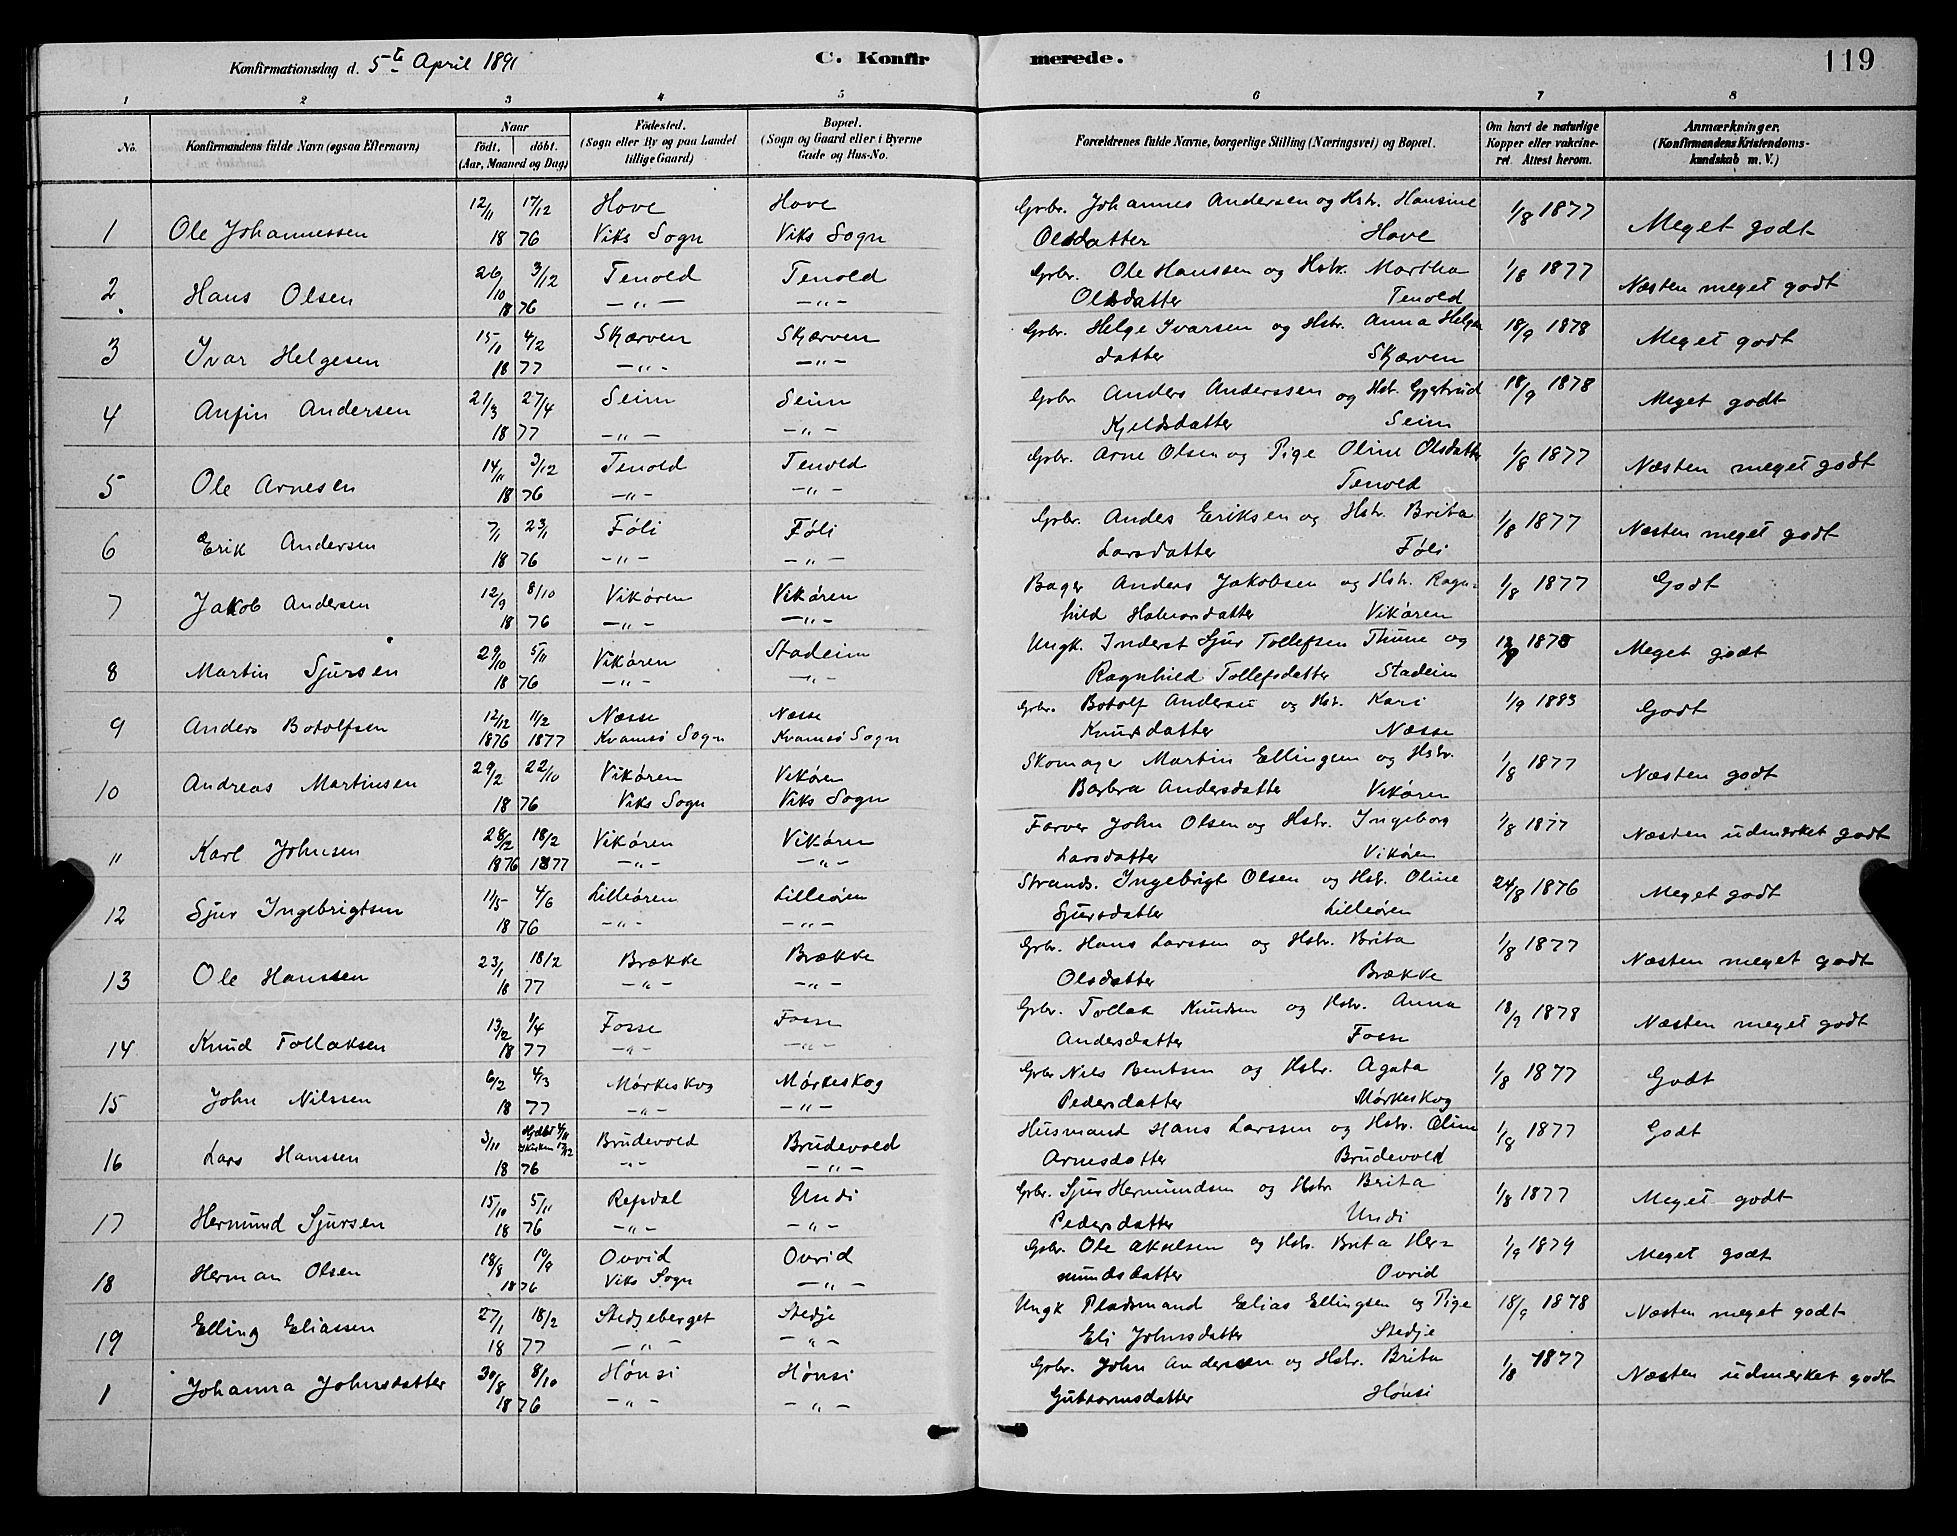 Konfirmationsdag d. 5te April 1891 C. Konfirmerede. 119
1 2 3 4 5 6 7 8
No. Konfirmandens fulde Navn (ogsaa Efternavn) Naar født. døbt. (Aar, Maaned og Dag) Fødested. (Sogn eller By og paa Landet tillige Gaard) Bopæl. (Sogn og Gaard eller i Byerne Gade og Hus-No. Forældrenes fulde Navne, borgerlige Stilling (Næringsvei) og Bopæl. Om havt de naturlige Kopper eller vakcineret. Attest herom. Anmærkninger. (Konfirmandens Kristendomskundskab m. V.)
12/11 17/12 Hove Hove Gbr. Johannes Andersen og Hstr. Hansine 1/8 1877
1 Ole Johannessen 18 76 Viks Sogn Viks Sogn Olsdatter Hove Meget godt
26/10 3/12 Tenold Tenold Gbr. Ole Hanssen og Hstr. Martha 1/8 1877
2 Hans Olsen 18 76 -"- -"- Olsdatter Tenold Næsten meget godt
15/1 4/2 Skjærven Skjærven Gbr. Helge Ivarsen og Hstr. Anna Helges 18/9 1878
3 Ivar Helgesen 18 77 -"- -"- datter Skjærven Meget godt
21/3 27/4 Seim Seim Gbr. Anders Anderssen og Hstr. Gjertrud 18/9 1878
4 Anfin Andersen 18 77 -"- -"- Kjeldsdatter Seim Meget godt
14/11 3/12 Tenold Tenold Gbr. Arne Olsen og Pige Oline Olsdatter 1/8 1877
5 Ole Arnesen 18 76 -"- -"- Tenold Næsten meget godt
7/1 23/1 Føli Føli Gbr. Andes Eriksen og Hstr. Brita 1/8 1877
6 Erik Andersen 18 76 -"- -"- Larsdatter Føli Næsten meget godt
12/9 8/10 Vikøren Vikøren Bager Anders Jakobsen og Hstr. Ragn- 1/8 1877 Godt
7 Jakob Andersen 18 76 -"- -"- hild Halvorsdatter Vikøren
29/10 5/11 Vikøren Stadeim Ungk. Inderst Sjur Tollefsen Thune og
8 Martin Sjursen 18 76 -"- -"- Ragnhild Tollefsdatter Stadeim Meget godt
12/12 11/2 Næsse Næsse Gbr. Botolf Andersen og Hstr. Kari 1/9 1883 Godt
9 Anders Botolfsen 1876 1877 Kvamsø Sogn Kvamsø Sogn Knutsdatter Næsse
29/2 22/10 Vikøren Vikøren Skomager Martin Ellingsen og Hstr. 1/8 1877
10 Andreas Martinsen 18 76 Viks Sogn Viks Sogn Barbra Andersdatter Vikøren Næsten godt
28/12 18/2 Vikøren Vikøren Farver John Olsen og Hstr. Ingeborg 1/8 1877
11 Karl Johnsen 1876 1877 -"- -"- Larsdatter Vikøren Næsten udmærket godt
11/5 4/6 Lilleøren Lilleøren Strands. Ingebrigt Olsen og Hstr. Oline 24/8 1876
12 Sjur Ingebrigtsen 18 76 -"- -"- Sjursdatter Lilleøren Meget godt
23/1 18/2 Brække Brække Gbr. Hans Larssen og Hstr. Brita 1/8 1877
13 Ole Hanssen 18 77 -"- -"- Olsdatter Brække Næsten meget godt
13/2 4/4 Fosse Fosse Gbr. Tollak Knudsen og Hstr. Anna 18/9 1878
14 Knud Tollaksen 18 77 -"- -"- Andersdatter Fosse Næsten meget godt
6/2 4/3 Mørkeskog Mørkeskog Gbr Nils Bentsen og Hstr. Agata 1/8 1877 Godt
15 John Nilssen 18 77 -"- -"- Pedersdatter Mørkeskog
3/11 Hjdøbt 4/11 Kirken 17/12 Brudevold Brudevold Husmand Hans Larssen og Hstr. Oline 1/8 1877 Godt
16 Lars Hanssen 18 76 -"- -"- Arnesdatter Brudevold
15/10 5/11 Refsdal Undi Gbr. Sjur Hermundsen og Hstr Brita 1/8 1877
17 Hermund Sjursen 18 76 -"- -"- Pedersdatter Undi Meget godt
18/8 10/9 Ovrid Ovrid Gbr. Ole Akselsen og Hstr. Brita Her- 1/9 1879
18 Herman Olsen 18 76 Viks Sogn -"- mundsdatter Ovrid Meget godt
27/1 18/2 Stedjeberget Stedje Ungk Pladsmand Elias Ellingsen og Pige 18/9 1878
19 Elling Eliassen 18 77 -"- -"- Eli Johnsdatter Stedje Næsten meget godt
30/8 8/10 Hønsi Hønsi Gbr. John Andersen og Hstr. Brita 1/8 1877
1 Johanna Johnsdatter 18 76 -"- -"- Guttormsdatter Hønsi Næsten udmærket godt